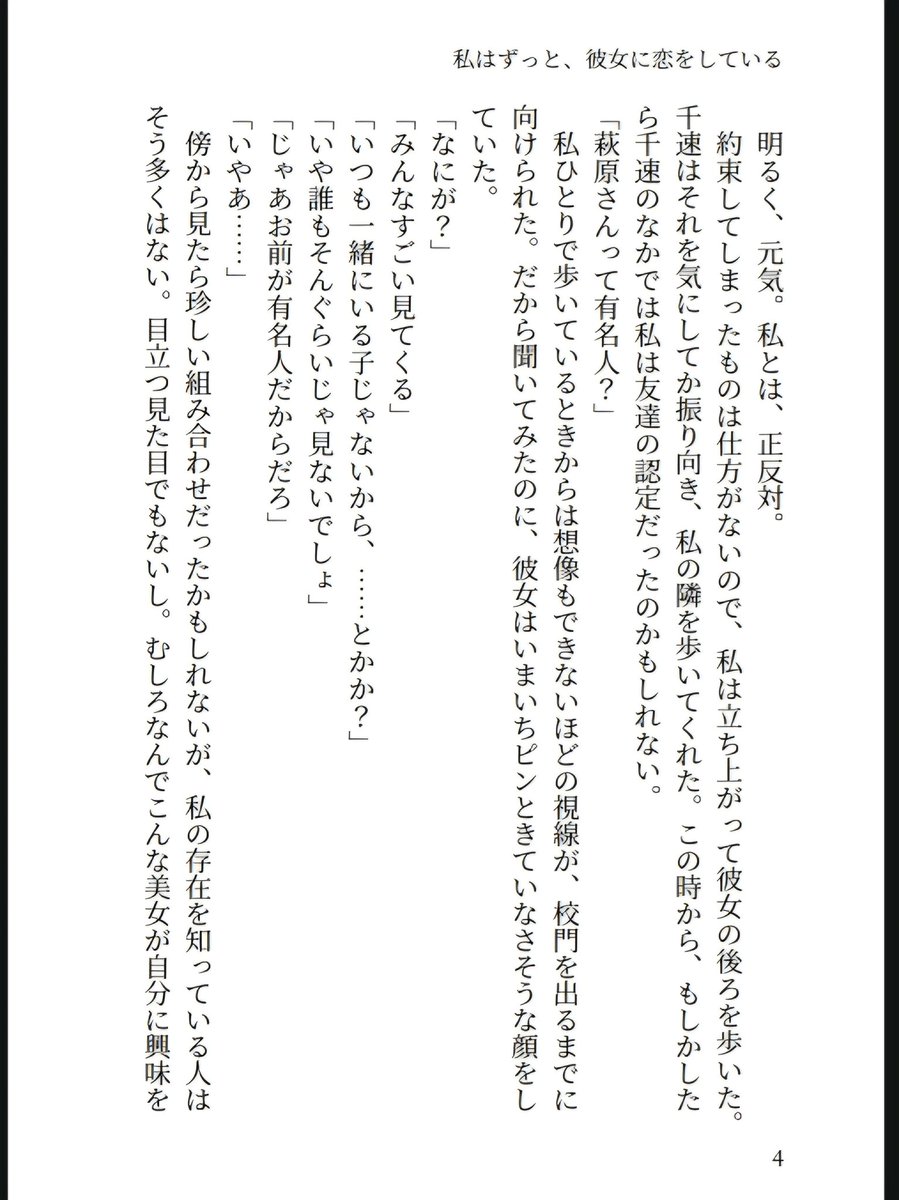 私はずっと、彼女に恋をしている
明るく、元気。私とは、正反対。
約束してしまったものは仕方がないので、私は立ち上がって彼女の後ろを歩いた。
千速はそれを気にしてか振り向き、私の隣を歩いてくれた。この時から、もしかした
ら千速のなかでは私は友達の認定だったのかもしれない。
「萩原さんって有名人？」
私ひとりで歩いているときからは想像もできないほどの視線が、校門を出るまでに
向けられた。だから聞いてみたのに、彼女はいまいちピンときていなさそうな顔をし
ていた。
「なにが？」
「みんなすごい見てくる」
「いつも一緒にいる子じゃないから、……とかか？」
「いや誰もそんぐらいじゃ見ないでしょ」
「じゃあお前が有名人だからだろ」
「いやあ……」
傍から見たら珍しい組み合わせだったかもしれないが、私の存在を知っている人は
そう多くはない。目立つ見た目でもないし。むしろなんでこんな美女が自分に興味を
4